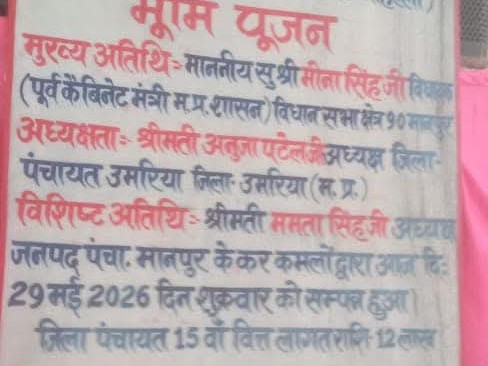 भूमि पूजन
मुख्य अतिथि:- माननीय सुश्री मीना सिंह जी विधायक
(पूर्व कैबिनेट मंत्री म.प्र.शासन) विधान सभा क्षेत्र 90 मानपुर
अध्यक्षता:- श्रीमती अनुजा पटेल जी अध्यक्ष जिला-
पंचायत उमरिया जिला- उमरिया (म.प्र.)
विशिष्ट अतिथि:- श्रीमती ममता सिंह जी अध्यक्ष
जनपद पंचा. मानपुर के कर कमलों द्वारा आज दि:
29 मई 2026 दिन शुक्रवार को सम्पन्न हुआ।
जिला पंचायत 15 वाँ वित्त लागत राशि 12 लाख